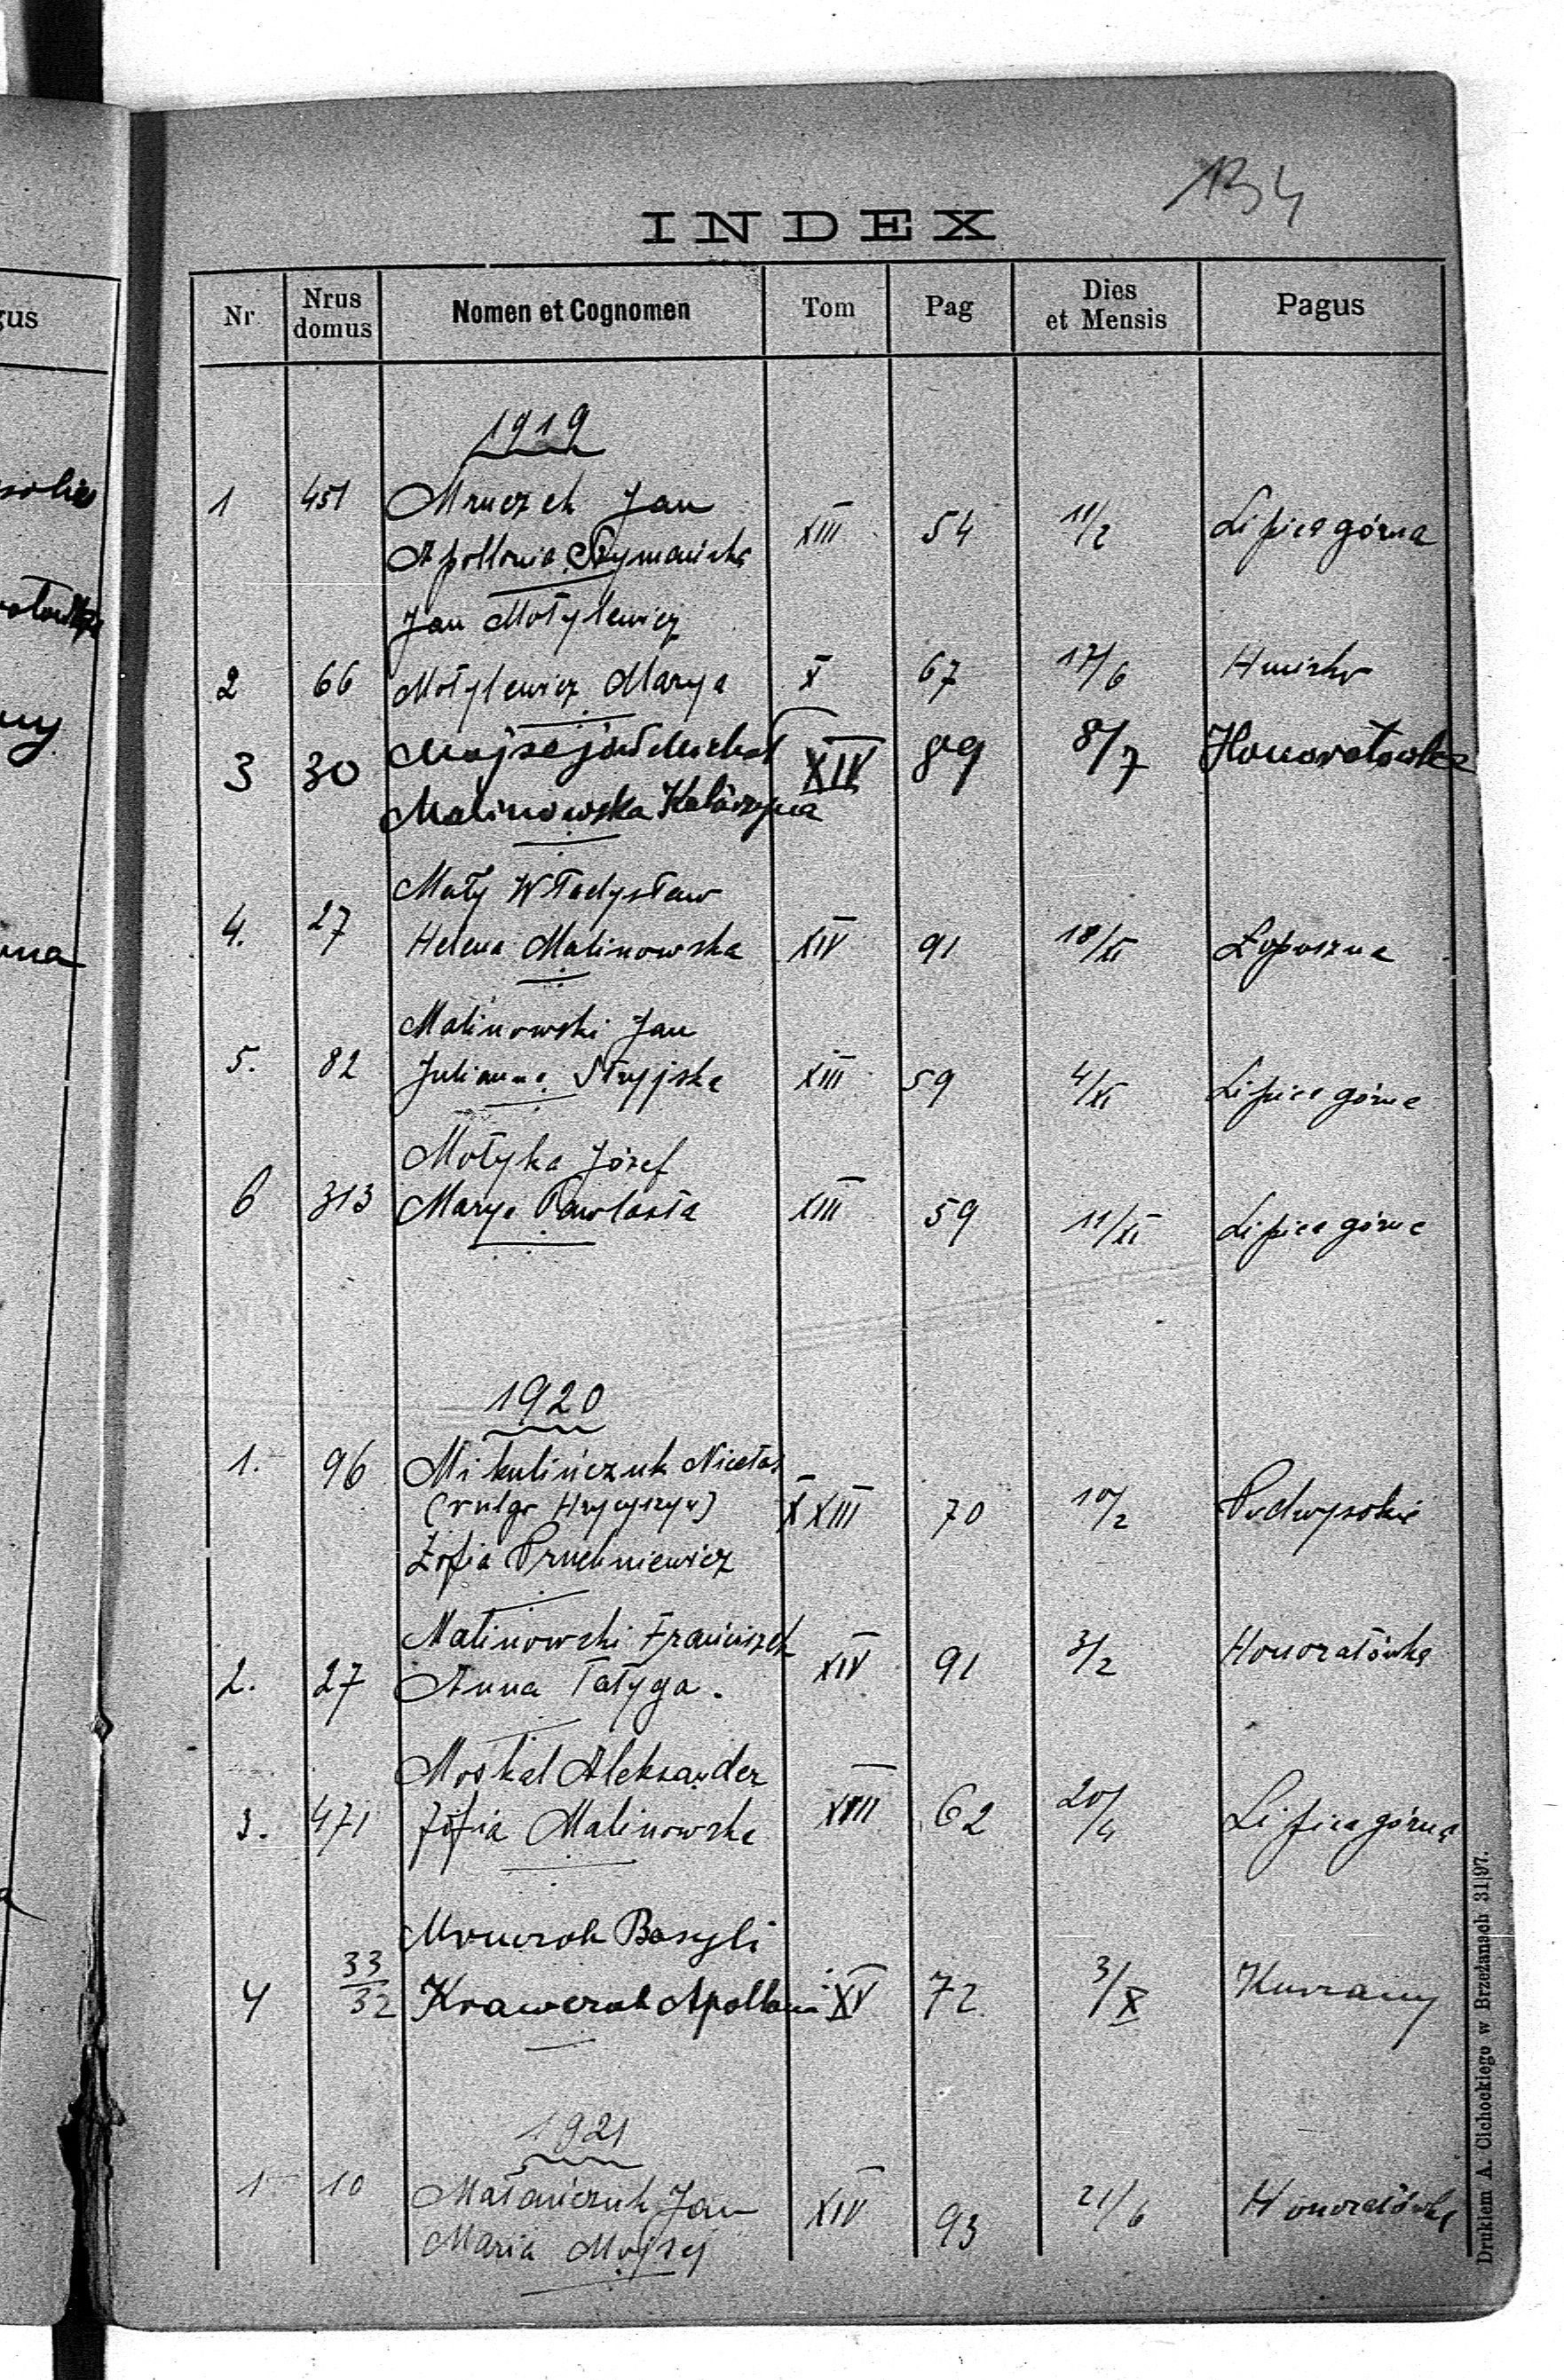 134
INDEX
Nr Nrus domus Nomen et Cognomen Tom Pag Dies et Mensis Pagus
1919
1 451 Mruczek Jan
Apollonia Szymańska XIII 54 11/2 Lipica górna
Jan Motylewicz
2 66 Motylewicz Marya X 67 17/6
3 30 Mojsej Michał XIV 89 8/7 Honoratówka
Malinowska Katarzyna
Mały Władysław
4. 27 Helena Malinowska XIV 91 18/XI Łopuszna
Malinowski Jan
5. 82 Julianna Stryjska XIII 59 4/XI Lipica górna
Motyka Józef
6 313 Marya Pawlasta XIII 59 11/XI Lipica górna
1920
1. 96 Mikulińczuk Nicetas
(vulgo Hrycyszyn) XXIII 70 10/2 Podwysokie
Zofia Pruchniewicz
Malinowski Franciszek
2. 27 Anna Tatyga. XIV 91 3/2 Honoratówka
Moskal Aleksander
3. 471 Zofia Malinowska XIII 62 20/4 Lipica górna
Bazyli
4 33/32 Krawczuk Apollonia XV 72 3/X Kurzany
1921
1 10 Małańczuk Jan XIV 93 21/6 Honoratówka
Maria Mojsej
Drukiem A. Cichockiego w Brzeżanach 31|97.